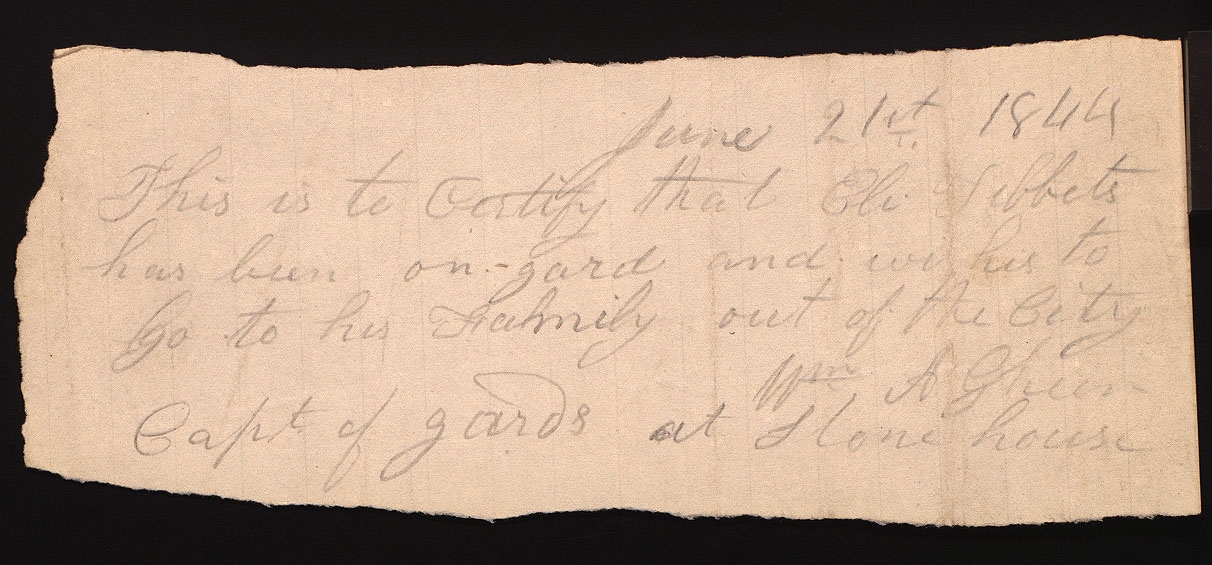 June 21st. 1844
This is to Certify that Eli Tibbets
has been on-gard and wishes to
Go to his Fahmily out of the City
Wm A Gheen
Capt. of gards at Stone house